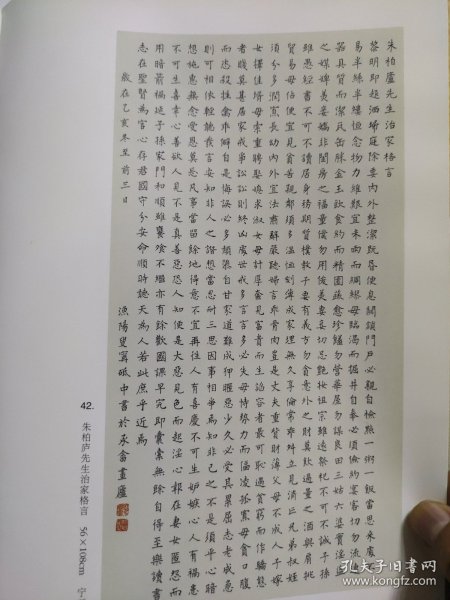 朱柏廬先生治家格言
黎明即起洒掃庭除要內外整潔既昏便息關鎖門戶必親自檢點一粥一飯當思來處不
易半絲半縷恒念物力維艱宜未雨而綢繆毋臨渴而掘井自奉必須儉約宴客切勿流連
器具質而潔瓦缶勝金玉飲食約而精園蔬愈珍饈勿營華屋勿謀良田三姑六婆實淫盜
之媒婢美妾嬌非閨房之福童僕勿用俊美妻妾切忌艷妝祖宗雖遠祭祀不可不誠子孫
雖愚經書不可不讀居身務期質樸教子要有義方勿貪意外之財莫飲過量之酒與肩挑
貿易毋佔便宜見貧苦親鄰須多溫恤刻薄成家理無久享倫常乖舛立見消亡兄弟叔姪
須分多潤寡長幼內外宜法肅辭嚴聽婦言乖骨肉豈是丈夫重貲財薄父母不成人子嫁
女擇佳壻毋索重聘娶媳求淑女毋計厚奩見富貴而生諂容者最可恥遇貧窮而作驕態
者賤莫甚居家戒爭訟訟則終凶處世戒多言言多必失毋恃勢力而凌逼孤寡毋貪口腹
而恣殺牲禽乖僻自是悔誤必多頹惰自甘家道難成狎暱惡少久必受其累屈志老成急
則可相依輕聽發言安知非人之譖愬當忍耐三思因事相爭焉知非己之不是須平心暗
想施惠無念受恩莫忘凡事當留餘地得意不宜再往人有喜慶不可生妒嫉心人有禍患
不可生喜幸心善欲人見不是真善惡恐人知便是大惡見色而起淫心報在妻女匿怨而
用暗箭禍延子孫家門和順雖饔飧不繼亦有餘歡國課早完即囊橐無餘自得至樂讀書
志在聖賢為官心存君國守分安命順時聽天為人若此庶乎近焉
歲在乙亥冬至前三日
漁陽叟寧砥中書於承畬畫廬
42.
朱柏庐先生治家格言 56×108cm 宁
孔夫子旧书网
book.kongfz.com